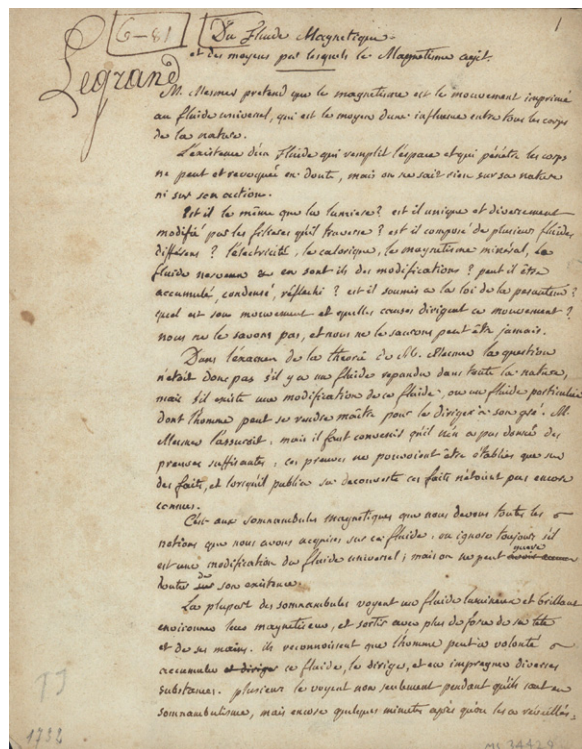 6-81
1
Legrand
Du Fluide Magnetique
et des moyens par lesquels le Magnetisme agit.
M. Mesmer pretend que le magnetisme est le mouvement imprimé
au fluide universel, qui est le moyen d'une influence entre tous les corps
de la nature.
L'existence d'un Fluide qui remplit l'espace et qui pénétre les corps
ne peut etre revoquée en doute, mais on ne sait rien sur sa nature
ni sur son action.
Est il le même que la lumiere? est il unique et diversement
modifié par les filieres qu'il traverse? est il composé de plusieurs fluides
differens? l'électricité, le calorique, le magnetisme minéral, le
fluide nerveux en sont ils des modifications? peut il être
accumulé, condensé, réflechi? est il soumis a la loi de la pesanteur?
quel est son mouvement et quelles causes dirigent ce mouvement?
nous ne le savons pas, et nous ne le saurons peut être jamais.
Dans l'examen de la théorie de M. Mesmer la question
n'était donc pas s'il y a un fluide repandu dans toute la nature,
mais s'il existe une modification de ce fluide, ou un fluide particulier
dont l'homme peut se rendre maître pour le diriger a son gré. M.
Mesmer l'assuroit, mais il faut convenir qu'il n'en a pas donné des
preuves suffisantes; ces preuves ne pouvoient être établies que sur
des faits, et lorsqu'il publia sa decouverte ces faits n'étoient pas encore
connus.
C'est aux somnambules magnetiques que nous devons toutes les
notions que nous avons acquises sur ce fluide. on ignore toujours s'il
est une modification du fluide universel; mais on ne peut guere
douter de son existence.
La plupart des somnambules voyent un fluide lumineux et brillant
environner leur magnetiseur, et sortir avec plus de force de sa tête
et de ses mains. ils reconnoissent que l'homme peut a volonté
accumuler et diriger ce fluide, le diriger, et en impregner diverses
substances. plusieurs le voyent non seulement pendant qu'ils sont en
somnambulisme, mais encore quelques minutes après qu'on les a reveillés,
TJ
1732